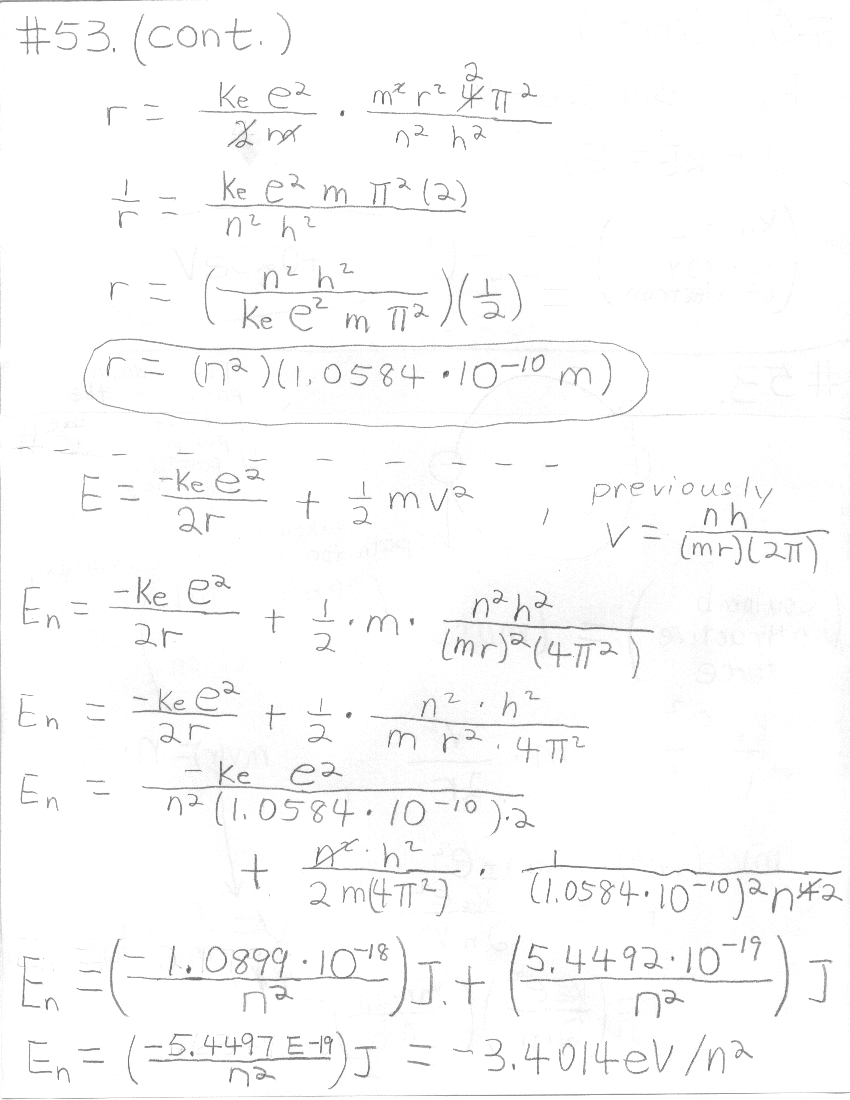 #53. (cont.)
r = ke e² / 2 m · m² r² 4 2 π² / n² h²
1/r = ke e² m π² (2) / n² h²
r = (n² h² / ke e² m π²)(1/2)
r = (n²)(1.0584 · 10⁻¹⁰ m)
E = -ke e² / 2r + 1/2 m v² , previously v = nh / (mr)(2π)
En = -ke e² / 2r + 1/2 · m · n² h² / (mr)² (4π²)
En = -ke e² / 2r + 1/2 · n² · h² / m r² · 4π²
En = -ke e² / n² (1.0584 · 10⁻¹⁰) · 2
+ n² · h² / 2 m(4π²) · 1 / (1.0584 · 10⁻¹⁰)² n⁴ 2
En = (-1.0899 · 10⁻¹⁸ / n²) J. + (5.4492 · 10⁻¹⁹ / n²) J
En = (-5.4497 E-19 / n²) J = -3.4014 eV / n²